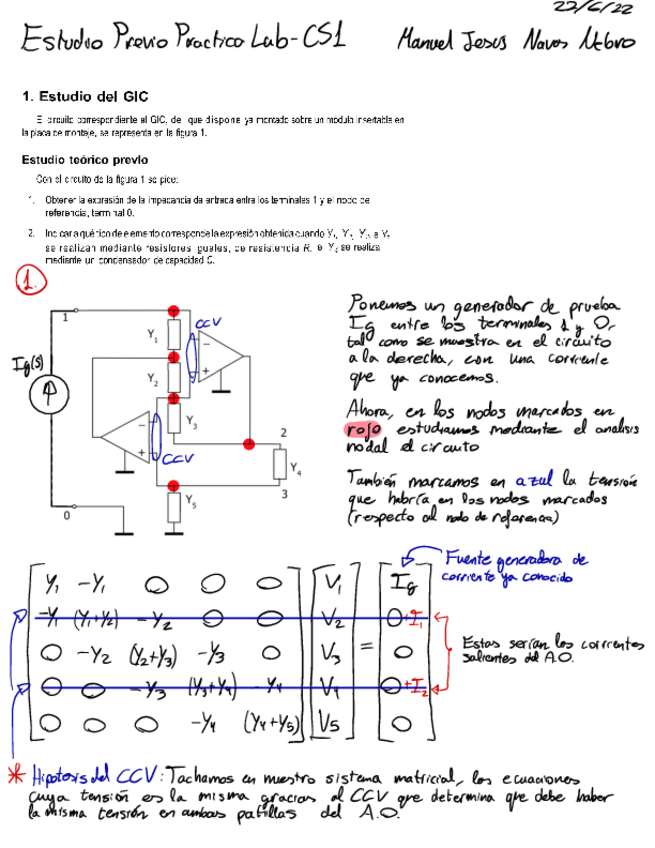 22/6/22
Estudio Previo Practica Lab-CS1 Manuel Jesús Navas
1. Estudio del GIC
El circuito correspondiente al GIC, del que dispone ya montado sobre un modulo insertable en
la placa de montaje, se representa en la figura 1.
Estudio teórico previo
Con el circuito de la figura 1 se pide:
1. Obtener la expresión de la impedancia de entrada entre los terminales 1 y el nodo de
referencia, terminal 0.
2. Indicar a qué tipo de elemento corresponde la expresión obtenida cuando Y₁, Y₂, Y₃, e Y₅
se realizan mediante resistores iguales, de resistencia R, e Y₄ se realiza
mediante un condensador de capacidad C.
1.
Ponemos un generador de prueba
Ig entre los terminales 1 y 0,
tal como se muestra en el circuito
a la derecha, con una corriente
que ya conocemos.
Ahora, en los nodos marcados en
rojo estudiamos mediante el análisis
nodal el circuito
También marcamos en azul la tensión
que habría en los nodos marcados
(respecto al nodo de referencia)
Ig(s)
1
Y₁
CCV
-
+
Y₂
Y₃
-
+
CCV
2
Y₄
3
Y₅
0
Fuente generadora de
corriente ya conocido
Y₁ -Y₁ 0 0 0 V₁ Ig
-Y₁ (Y₁+Y₂) -Y₂ 0 0 V₂ 0+I₁
0 -Y₂ (Y₂+Y₃) -Y₃ 0 V₃ = 0
0 0 -Y₃ (Y₃+Y₄) -Y₄ V₄ 0+I₂
0 0 0 -Y₄ (Y₄+Y₅) V₅ 0
Estas serían las corrientes
salientes del A.O.
* Hipotesis del CCV: Tachamos en nuestro sistema matricial, las ecuaciones
cuya tensión es la misma gracias al CCV que determina que debe haber
la misma tensión en ambas patillas del A.O.